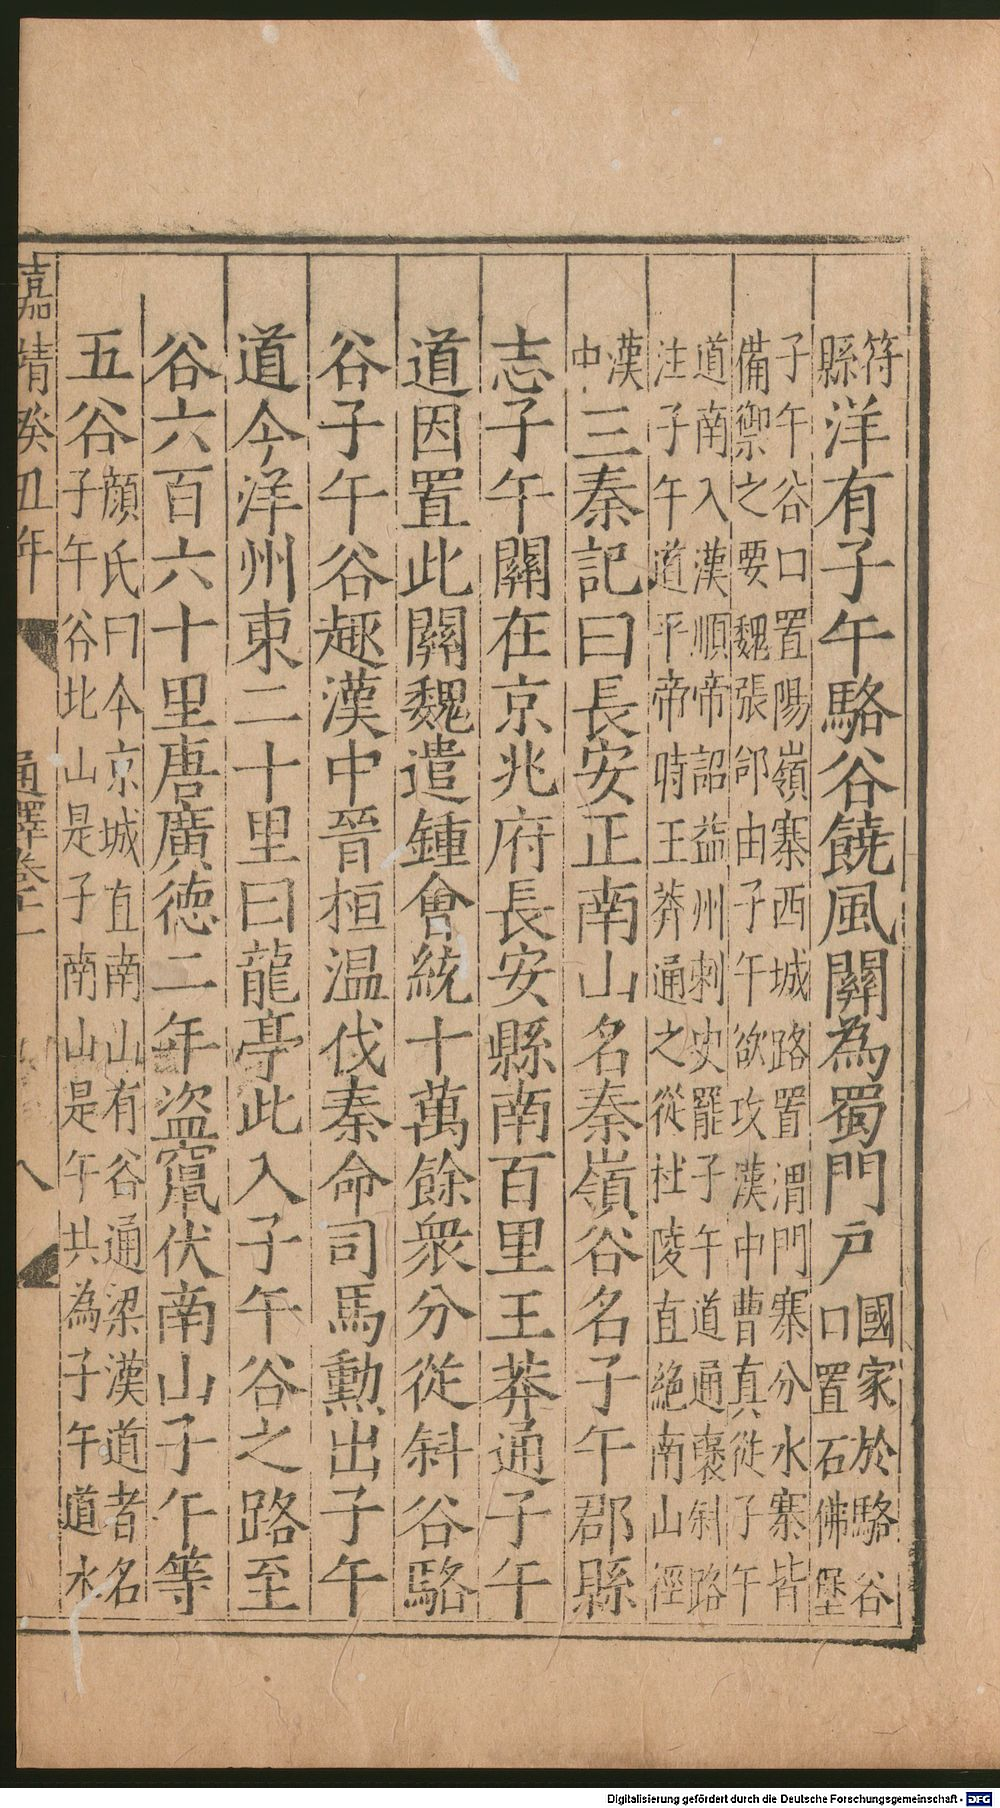 符縣洋有子午駱谷饒風關為蜀門戶國家於駱谷口置石佛堡
子午谷口置陽嶺寨西城路置渭門寨分水寨皆備禦之要魏張郃由子午欲攻漢中曹真從子午
道南入漢順帝詔益州刺史罷子午道通褒斜路注子午道平帝時王莽通之從杜陵直絕南山徑
漢中三秦記曰長安正南山名秦嶺谷名子午郡縣
志子午關在京兆府長安縣南百里王莽通子午
道因置此關魏遣鍾會統十萬餘衆分從斜谷駱
谷子午谷趣漢中晉桓温伐秦命司馬勳出子午
道今洋州東二十里曰龍亭此入子午谷之路至
谷六百六十里唐廣德二年盜竄伏南山子午等
五谷顔氏曰今京城直南山有谷通梁漢道者名子午谷北山是子南山是午共為子午道水
嘉靖癸丑年 通釋卷十一 八
Digitalisierung gefördert durch die Deutsche Forschungsgemeinschaft - DFG